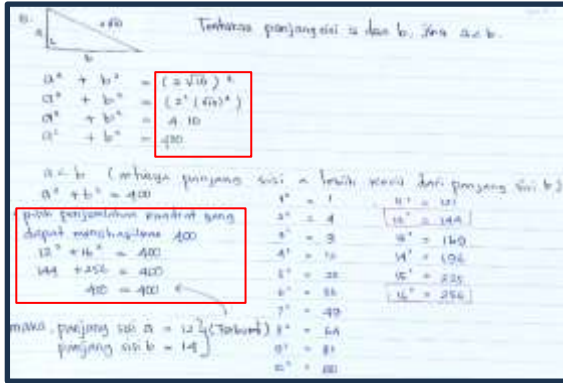 Tentukan panjang sisi a dan b, jika a<b.
a
b
a² + b² = (2√10)²
a² + b² = (2² (√10)²)
a² + b² = 4 . 10
a² + b² = 400
a < b ( panjang sisi a lebih kecil dari panjang sisi b)
a² + b² = 400
penjumlahan kuadrat yang
dapat menghasilkan 400
12² + 16² = 400
144 + 256 = 400
400 = 400
maka, panjang sisi a = 12 (Terbukti)
panjang sisi b =
1² = 1
2² = 4
3² = 9
4² = 16
5² = 25
6² = 36
7² = 49
8² = 64
9² = 81
10² = 100
11² = 121
12² = 144
13² = 169
14² = 196
15² = 225
16² = 256